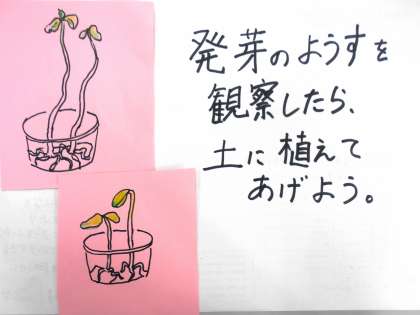 発芽のようすを
観察したら、
土に植えて
あげよう。